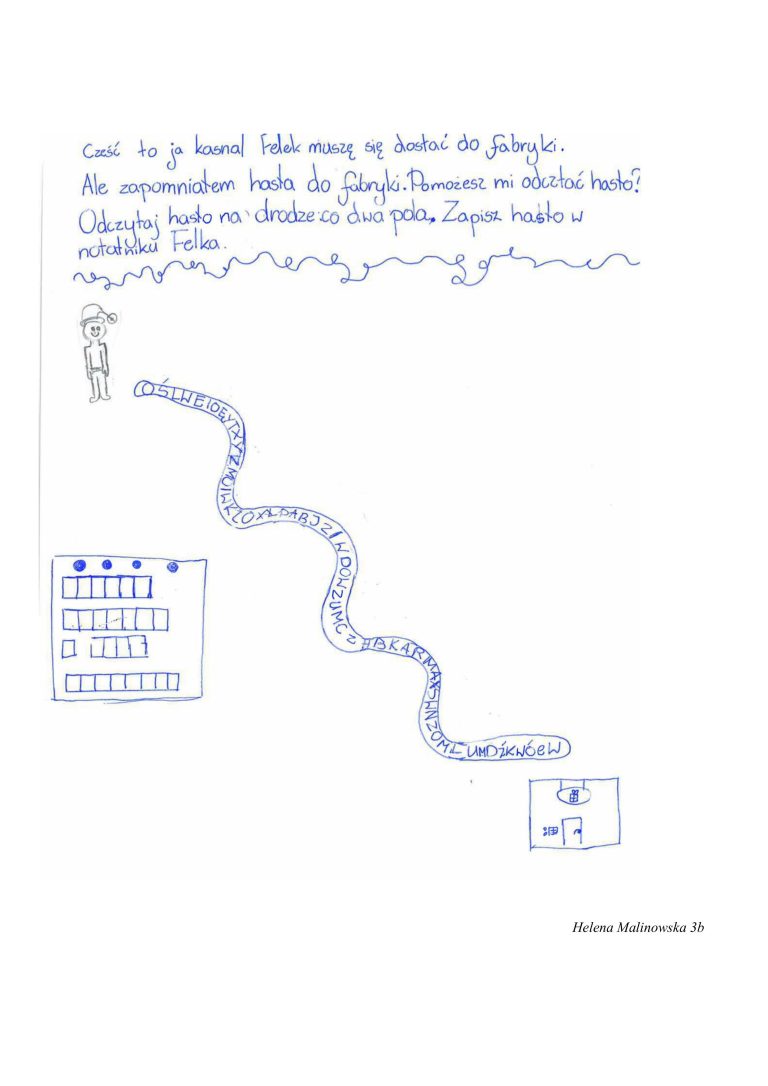 Cześć to ja kasnal Felek muszę się dostać do fabryki.
Ale zapomniałem hasła do fabryki. Pomożesz mi odcztać hasło?
Odczytaj hasło na drodze co dwa pola. Zapisz hasło w
notatniku Felka.
OŚLWEIOĘYTXYRMOIWK
UMDŹKWÓEW
Helena Malinowska 3b